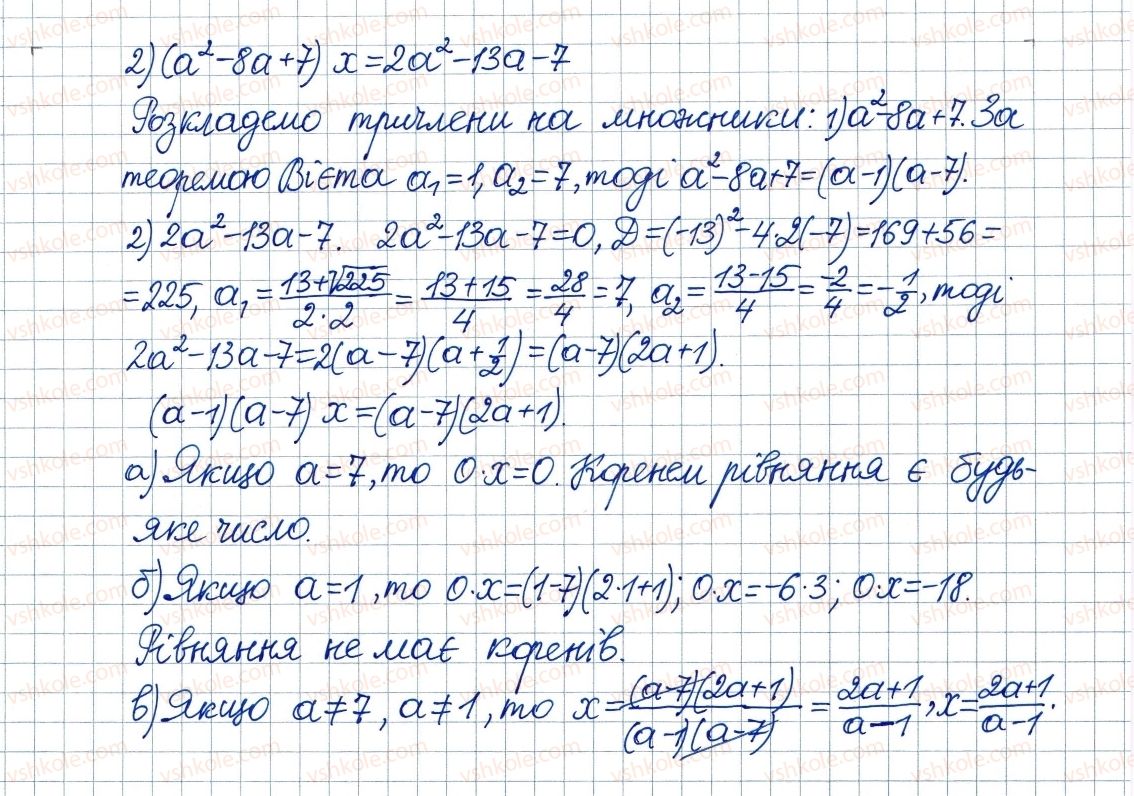 2) (a²-8a+7) x=2a²-13a-7
Розкладемо тричлени на множники: 1) a²-8a+7. За
теоремою Вієта a₁=1, a₂=7, тоді a²-8a+7=(a-1)(a-7).
2) 2a²-13a-7. 2a²-13a-7=0, Д=(-13)²-4·2(-7)=169+56=
=225, a₁=(13+√225)/(2·2)=(13+15)/4=28/4=7, a₂=(13-15)/4=-2/4=-1/2, тоді
2a²-13a-7=2(a-7)(a+1/2)=(a-7)(2a+1).
(a-1)(a-7) x=(a-7)(2a+1).
а) Якщо a=7, то 0·x=0. Коренем рівняння є будь-
яке число.
б) Якщо a=1, то 0·x=(1-7)(2·1+1); 0·x=-6·3; 0·x=-18.
Рівняння не має коренів.
в) Якщо a≠7, a≠1, то x=(a-7)(2a+1)/(a-1)(a-7)=(2a+1)/(a-1), x=(2a+1)/(a-1).